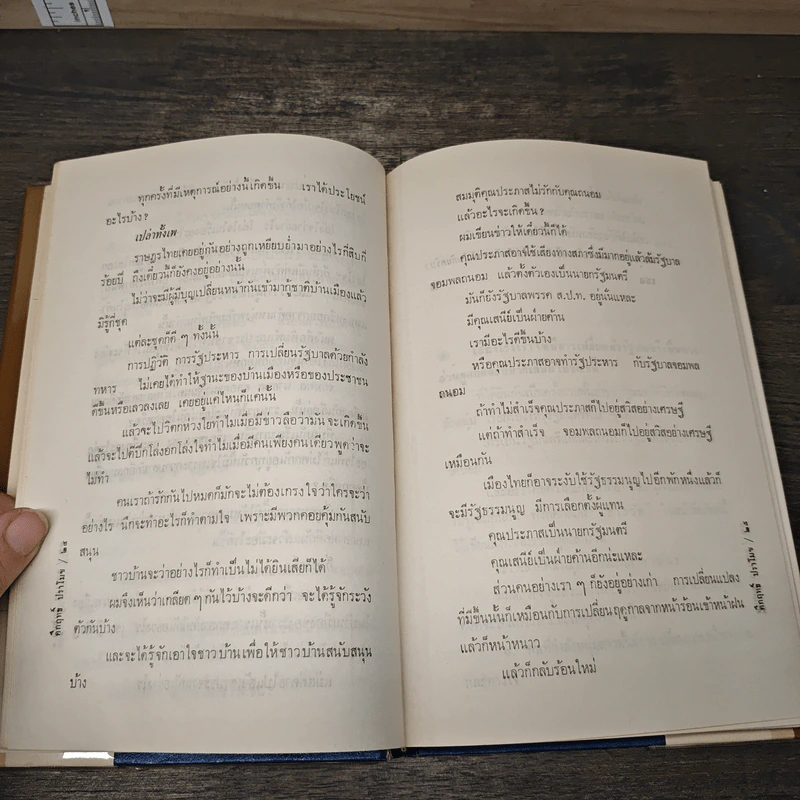 ทุกครั้งที่มีเหตุการณ์อย่างนี้เกิดขึ้น เราได้ประโยชน์
อะไรบ้าง?
เปล่าทั้งเพ
ราษฎรไทยเคยอยู่กันอย่างถูกเหยียบย่ำมาอย่างไรกี่สิบกี่
ร้อยปี ถึงเดี๋ยวนี้ก็ยังคงอยู่อย่างนั้น
ไม่ว่าจะมีผู้มีบุญเปลี่ยนหน้ากันเข้ามากู้ชาติบ้านเมืองแล้ว
มิรู้กี่ชุด
แต่ละชุดก็ดี ๆ ทั้งนั้น
การปฏิวัติ การรัฐประหาร การเปลี่ยนรัฐบาลด้วยกำลัง
ทหาร ไม่เคยได้ทำให้ฐานะของบ้านเมืองหรือของประชาชน
ดีขึ้นหรือเลวลงเลย เคยอยู่แค่ไหนก็แค่นั้น
แล้วจะไปวิตกห่วงใยทำไมเมื่อมีข่าวลือว่ามันจะเกิดขึ้น
แล้วจะไปดีอกโล่งอกโล่งใจทำไมเมื่อมีคนเพียงคนเดียวพูดว่าจะ
ไม่ทำ
คนเราถ้ารักกันไปหมดก็มักจะไม่ต้องเกรงใจว่าใครจะว่า
อย่างไร นึกจะทำอะไรก็ทำตามใจ เพราะมีพวกคอยคุ้มกันสนับ
สนุน
ชาวบ้านจะว่าอย่างไรก็ทำเป็นไม่ได้ยินเสียก็ได้
ผมจึงเห็นว่าเกลียด ๆ กันไว้บ้างจะดีกว่า จะได้รู้จักระวัง
ตัวกันบ้าง
และจะได้รู้จักเอาใจชาวบ้านเพื่อให้ชาวบ้านสนับสนุน
บ้าง
คึกฤทธิ์ ปราโมช / ๒๔
สมมุติคุณประภาสไม่รักกับคุณถนอม
แล้วอะไรจะเกิดขึ้น?
ผมเขียนข่าวให้เดี๋ยวนี้ก็ได้
คุณประภาสอาจใช้เสียงทางสภาซึ่งมีมากอยู่แล้วล้มรัฐบาล
จอมพลถนอม แล้วตั้งตัวเองเป็นนายกรัฐมนตรี
มันก็ยังรัฐบาลพรรค ส.ป.ท. อยู่นั่นแหละ
มีคุณเสนีย์เป็นฝ่ายค้าน
เรามีอะไรดีขึ้นบ้าง
หรือคุณประภาสอาจทำรัฐประหาร กับรัฐบาลจอมพล
ถนอม
ถ้าทำไม่สำเร็จคุณประภาสก็ไปอยู่สวิสอย่างเศรษฐี
แต่ถ้าทำสำเร็จ จอมพลถนอมก็ไปอยู่สวิสอย่างเศรษฐี
เหมือนกัน
เมืองไทยก็อาจระงับใช้รัฐธรรมนูญไปอีกพักหนึ่งแล้วก็
จะมีรัฐธรรมนูญ มีการเลือกตั้งผู้แทน
คุณประภาสเป็นนายกรัฐมนตรี
คุณเสนีย์เป็นฝ่ายค้านอีกน่ะแหละ
ส่วนคนอย่างเรา ๆ ก็ยังอยู่อย่างเก่า การเปลี่ยนแปลง
ที่มีขึ้นนั้นก็เหมือนกับการเปลี่ยนฤดูกาลจากหน้าร้อนเข้าหน้าฝน
แล้วก็หน้าหนาว
แล้วก็กลับร้อนใหม่
คึกฤทธิ์ ปราโมช / ๒๕
inches